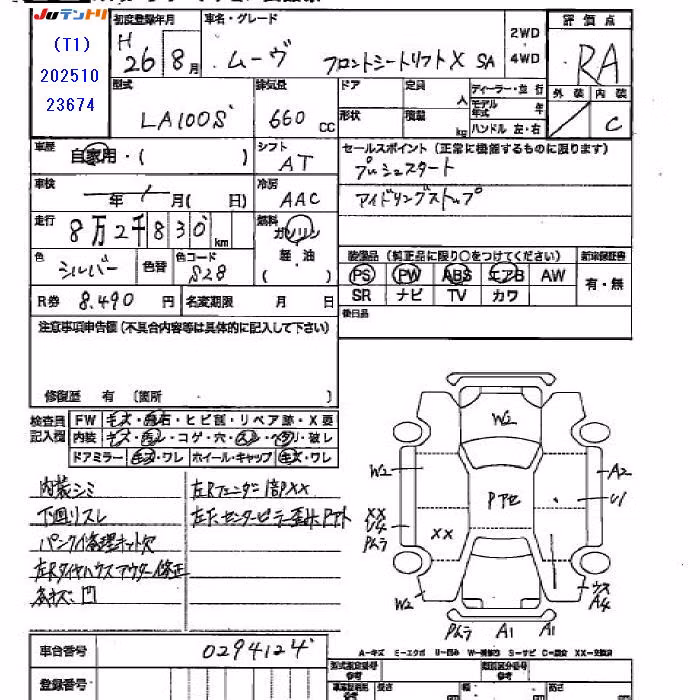 Juテントリ
(T1)
202510
23674
初度登録年月
H
26 8月
車名・グレード
ムーヴ フロントシートリフトX SA
2WD
4WD
評価点
RA
外装 内装
C
型式
LA100S
排気量
660 cc
ドア
形状
定員 人
積載 kg
ディーラー・並行
モデル年式 年
ハンドル 左・右
車歴
自家用・( )
シフト
AT
セールスポイント (正常に機能するものに限ります)
プッシュスタート
アイドリングストップ
車検
年 月( 日)
冷房
AAC
走行
8万2千830km
燃料
ガソリン
軽・油
( )
色
シルバー
色替
色コード
S28
装備品 (純正品に限り○をつけてください)
PS PW ABS エアB AW
SR ナビ TV カワ
新車保証書
有・無
R券 8,490 円 名変期限 月 日
後日品
注意事項申告欄(不具合内容等は具体的に記入して下さい)
修復歴 有 〔箇所 〕
検査員
記入欄
FW キズ・飛石・ヒビ割・リペア跡・X要
内装 キズ・汚レ・コゲ・穴・スレ・ヘタリ・破レ
ドアミラー キズ・ワレ ホイール・キャップ キズ・ワレ
内装シミ
下回りスレ
パンク修理キット欠
左Rタイヤハウスアウター修正
各キズ、凹
左Rフェンダー1部XX
左F、センターピラー歪ミ、Pアト
W2
W2
A2
U1
Pアセ
XX
U4
Pムラ
XX
W2
ウス
A4
Pムラ A1 A1
車台番号 0294124
登録番号
A=キズ E=エクボ U=凹み W=補修跡 S=サビ C=腐食 XX=交換済
型式指定番号
参考
類別区分番号
参考
長さ
幅
高さ